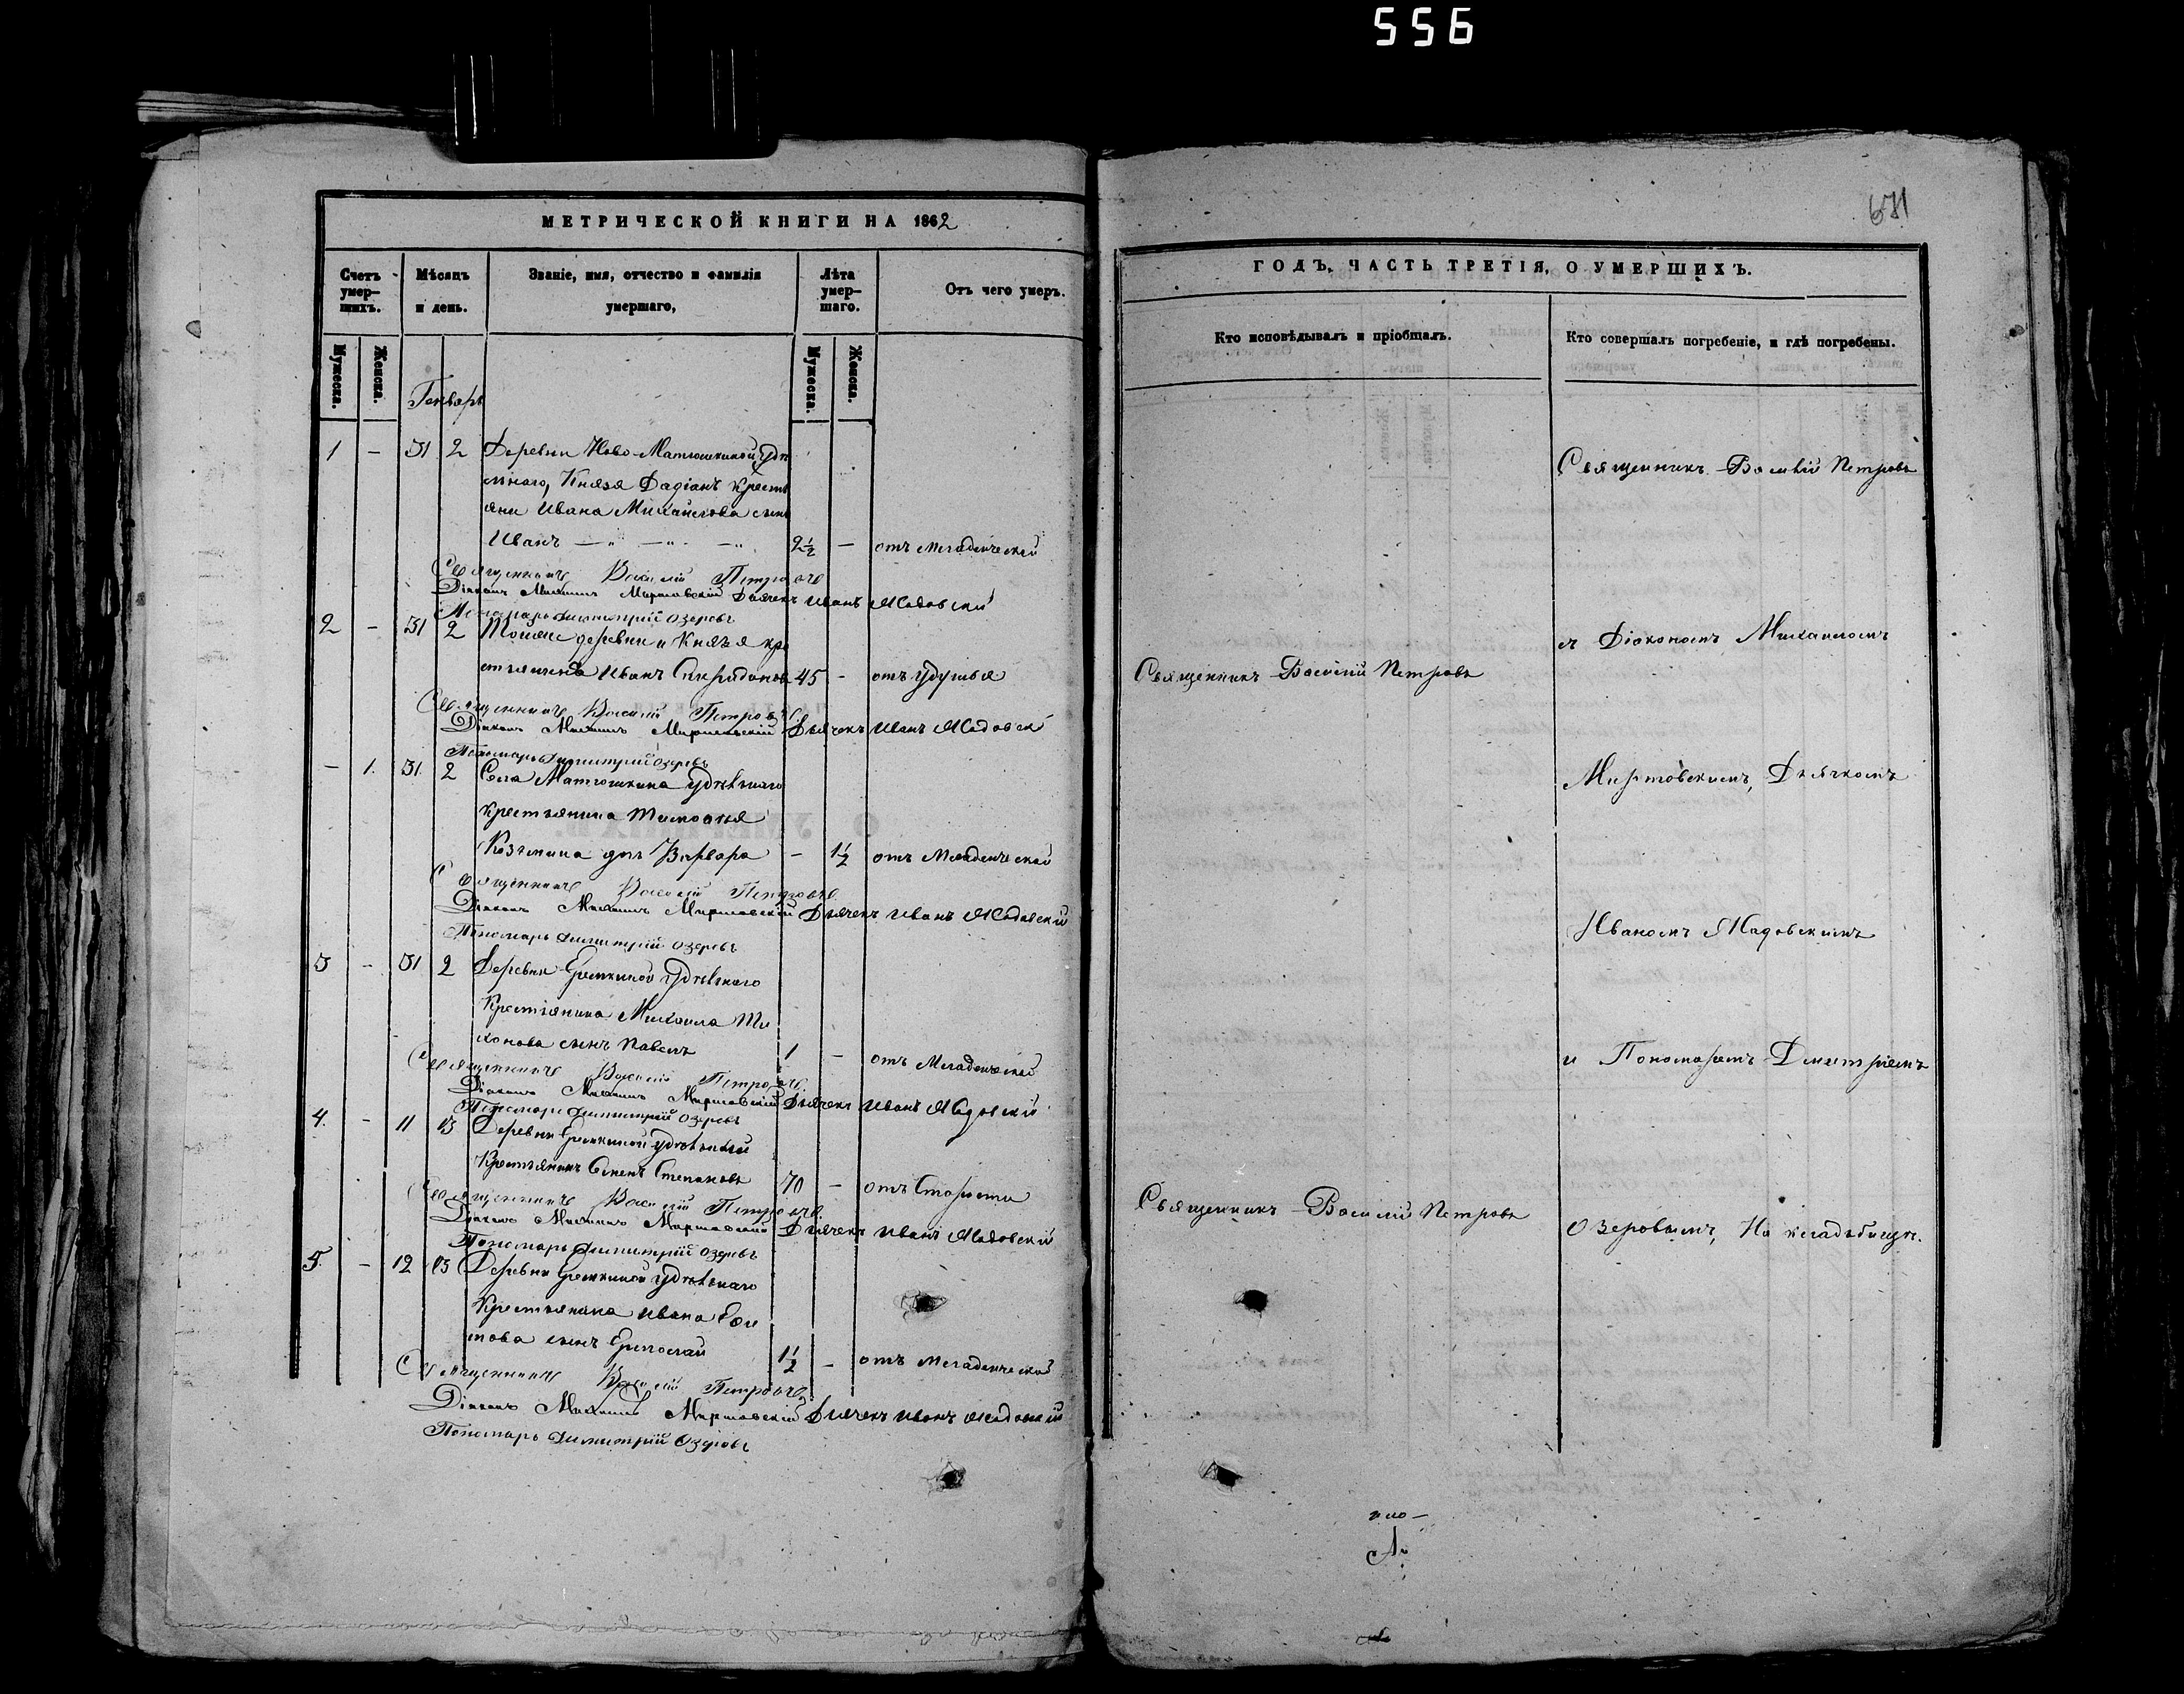 556
671
МЕТРИЧЕСКОЙ КНИГИ НА 1862
Счетъ умер-шихъ.
Мѣсяцъ и день.
Званіе, имя, отчество и фамилія умершаго,
Лѣта умер-шаго.
Отъ чего умеръ.
Мужеска.
Женска.
Мужеска.
Женска.
Генварь
1 - 31 2 Деревни Ново-Матюшкиной удѣ
льнаго, Князя Дадіанъ кресть
яни Ивана Михайлова сынъ
Иванъ — „ — „ — „ 2½ — отъ младенческой
Священникъ Василій Петровъ
Діаконъ Михаилъ Миртовскій Дьячекъ Иванъ
Пономарь Димитрій Озеровъ
2 - 31 2 Тойже деревни и Князя кре
стьянинъ Иванъ Спиридоновъ 45 - отъ удушья
Священникъ Василій Петровъ
Діаконъ Михаилъ Миртовскій Дьячекъ Иванъ
Пономарь Димитрій Озеровъ
- 1. 31. 2 Села Матюшкина удѣльнаго
Крестьянина Тимофея
Козьмина дчь Варвара - 1½ отъ младенческой
Священникъ Василій Петровъ
Діаконъ Михаилъ Миртовскій Дьячекъ Иванъ
Пономарь Димитрій Озеровъ
3 - 31 2 Деревни Еремкиной удѣльнаго
Крестьянина Михаила Ти
хонова сынъ Павелъ 1 - отъ младенческой
Священникъ Василій Петровъ
Діаконъ Михаилъ Миртовскій Дьячекъ Иванъ
Пономарь Димитрій Озеровъ
4. - 11 13 Деревни Еремкиной удѣльный
Крестьянинъ Семенъ Степановъ 70 - отъ Старости
Священникъ Василій Петровъ
Діаконъ Михаилъ Миртовскій Дьячекъ Иванъ
Пономарь Димитрій Озеровъ
5. - 12 13 Деревни Еремкиной удѣльнаго
Крестьянина Ивана
сынъ Ермолай 1½ - отъ младенческой
Священникъ Василій Петровъ
Діаконъ Михаилъ Миртовскій Дьячекъ Иванъ
Пономарь Димитрій Озеровъ
ГОДЪ, ЧАСТЬ ТРЕТІЯ, О УМЕРШИХЪ.
Кто исповѣдывалъ и пріобщалъ.
Кто совершалъ погребеніе, и гдѣ погребены.
Священникъ Василій Петровъ
съ Діакономъ Михаиломъ
Священникъ Василій Петровъ
Миртовскимъ, Дьячкомъ
Иваномъ
и Пономаремъ Димитріемъ
Священникъ Василій Петровъ
Озеровымъ, На кладбищѣ.